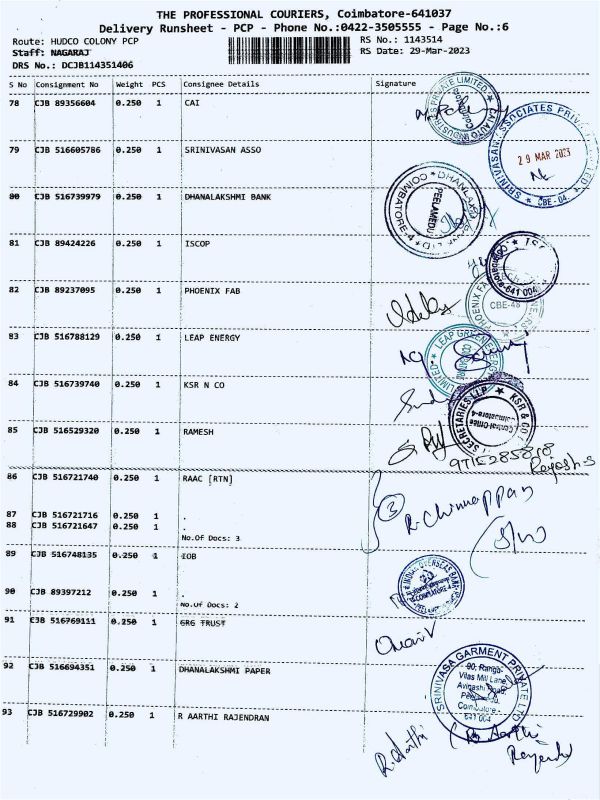 THE PROFESSIONAL COURIERS, Coimbatore-641037
Delivery Runsheet - PCP - Phone No.:0422-3505555 - Page No.:6
Route: HUDCO COLONY PCP RS No.: 1143514
Staff: NAGARAJ RS Date: 29-Mar-2023
DRS No.: DCJB114351406
S No Consignment No Weight PCS Consignee Details Signature
78 CJB 89356604 0.250 1 CAI
79 CJB 516605786 0.250 1 SRINIVASAN ASSO
29 MAR 2023
CBE-04.
80 CJB 516739979 0.250 1 DHANALAKSHMI BANK
COIMBATORE-4
PEELAMEDU
81 CJB 89424226 0.250 1 ISCOP
82 CJB 89237095 0.250 1 PHOENIX FAB
PHOENIX FAB
CBE-48
83 CJB 516788129 0.250 1 LEAP ENERGY
LEAP GREEN ENERGY
LIMITED
84 CJB 516739740 0.250 1 KSR N CO
KSR & CO
SECRETARIES LLP
85 CJB 516529320 0.250 1 RAMESH
9715285818
86 CJB 516721740 0.250 1 RAAC [RTN]
3 R. Chinnappan
87 CJB 516721716 0.250 1 .
88 CJB 516721647 0.250 1 .
No.Of Docs: 3
S/W
89 CJB 516748135 0.250 1 IOB
INDIAN OVERSEAS BANK
90 CJB 89397212 0.250 1 .
No.Of Docs: 2
91 CJB 516769111 0.250 1 GRG TRUST
92 CJB 516694351 0.250 1 DHANALAKSHMI PAPER
SRINIVASA GARMENT PRIVATE LTD
90, Ranga
Vilas Mill Lane,
Avinashi Road,
Coimbatore -
641 004
93 CJB 516729902 0.250 1 R AARTHI RAJENDRAN
R. Aarthi